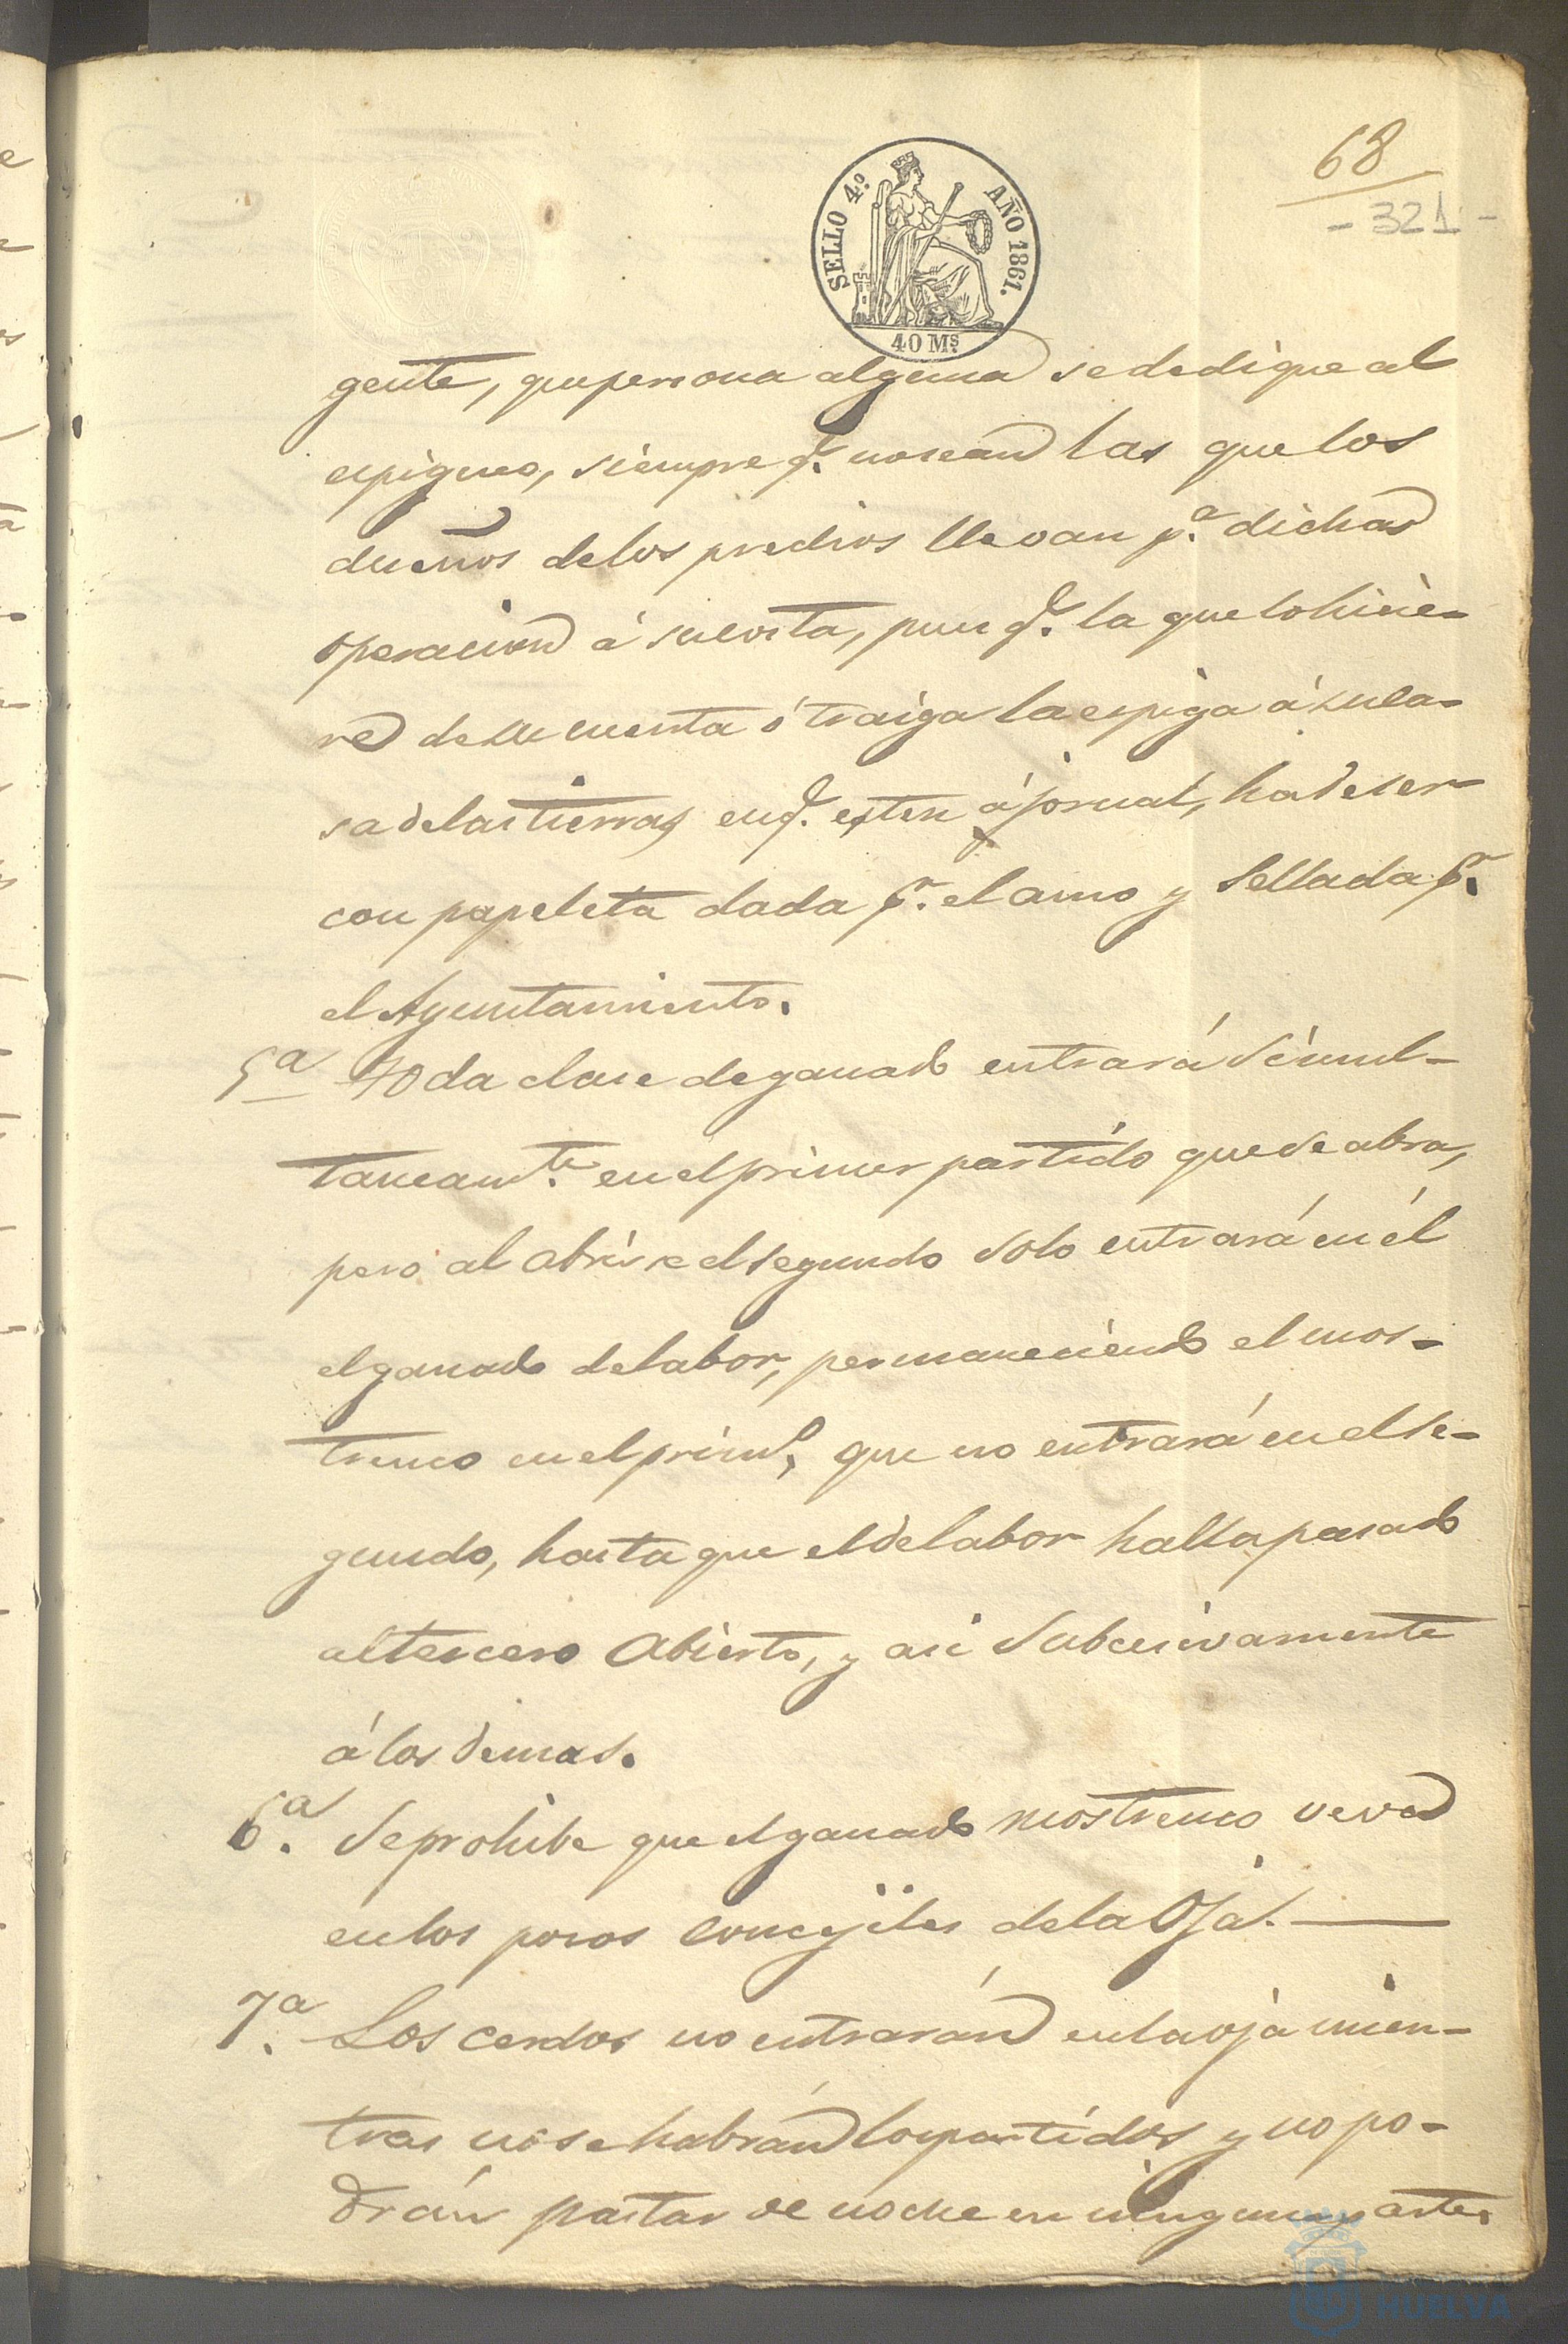 68
- 321 -
SELLO 4.º AÑO 1861.
40 Ms.
gente, que persona alguna se dedique al
espigueo, siempre q.e no sean las que los
dueños de los predios llevan p.a dicha
operacion á su costa, pues q.e la que lo hicie-
re de su cuenta ó traiga la espiga á su ca-
sa de las tierras en q.e esten á jornal, ha de ser
con papeleta dada p.r el amo y sellada p.r
el Ayuntamiento.
5a Toda clase de ganado entrará simul-
taneam.te en el primer partido que se abra,
pero al abrirse el segundo solo entrará en él
el ganado de labor, permaneciendo el mos-
trenco en el prim.o, que no entrará en el se-
gundo, hasta que el de labor halla pasado
al tercero abierto, y asi subcesivamente
á los demas.
6.a Se prohibe que el ganado mostrenco veva
en los posos concejiles de la Oja.
7.a Los cerdos no entrarán en la oja mien-
tras no se habrán los partidos y no po-
drán pastar de noche en ninguna parte.
HUELVA